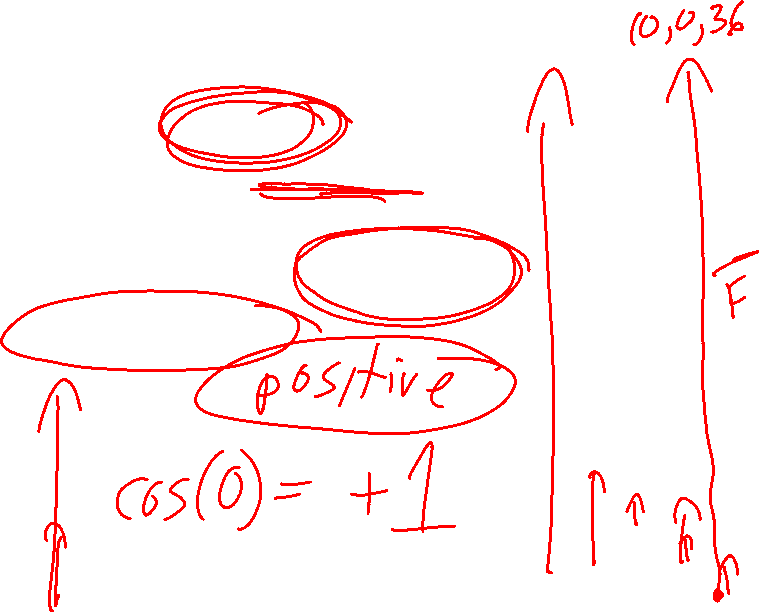 (0,0,36
F
positive
cos(0) = +1